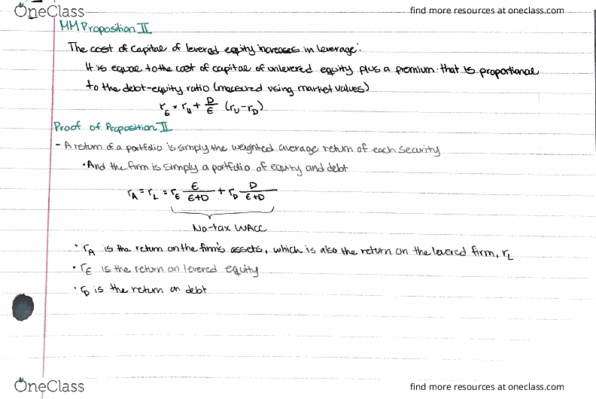 OneClass
find more resources at oneclass.com
MM Proposition II
The cost of capital of levered equity increases in leverage:
It is equal to the cost of capital of unlevered equity plus a premium that is proportional
to the debt-equity ratio (measured using market values)
r_E = r_U + D/E (r_U - r_D)
Proof of Proposition II
- A return of a portfolio is simply the weighted average return of each security
• And the firm is simply a portfolio of equity and debt
r_A = r_L = r_E E/(E+D) + r_D D/(E+D)
No-tax WACC
• r_A is the return on the firm's assets, which is also the return on the levered firm, r_L
• r_E is the return on levered equity
• r_D is the return on debt
OneClass
find more resources at oneclass.com